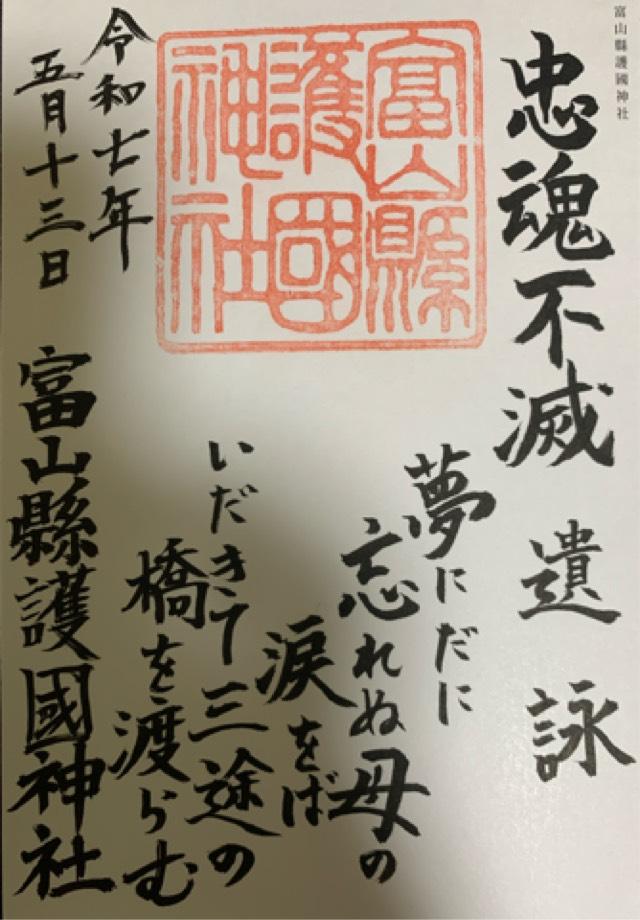 富山縣護國神社
忠魂不滅 遺詠
夢にだに
忘れぬ母の
涙をば
いだきて三途の
橋を渡らむ
富山縣護國神社
令和七年
五月十三日
富山縣護國神社